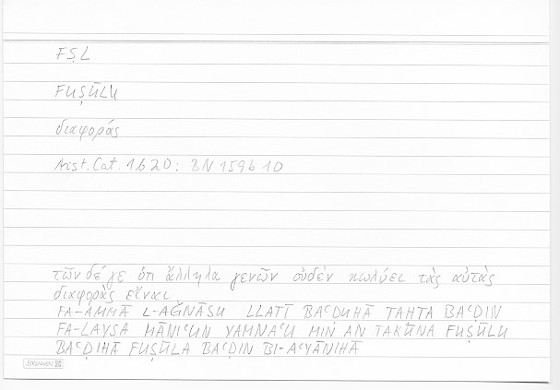 FṢL
FUṢŪLU
διαφοράς
Arist. Cat. 1b20: BN 159b10
τῶν δέ γε ὑπ' ἄλληλα γενῶν οὐδὲν κωλύει τὰς αὐτὰς
διαφορὰς εἶναι
FA-AMMĀ L-AǦNĀSU LLATĪ BAʿḌUHĀ TAḤTA BAʿḌIN
FA-LAYSA MĀNIʿUN YAMNAʿU MIN AN TAKŪNA FUṢŪLU
BAʿḌIHĀ FUṢŪLA BAʿḌIN BI-AʿYĀNIHĀ